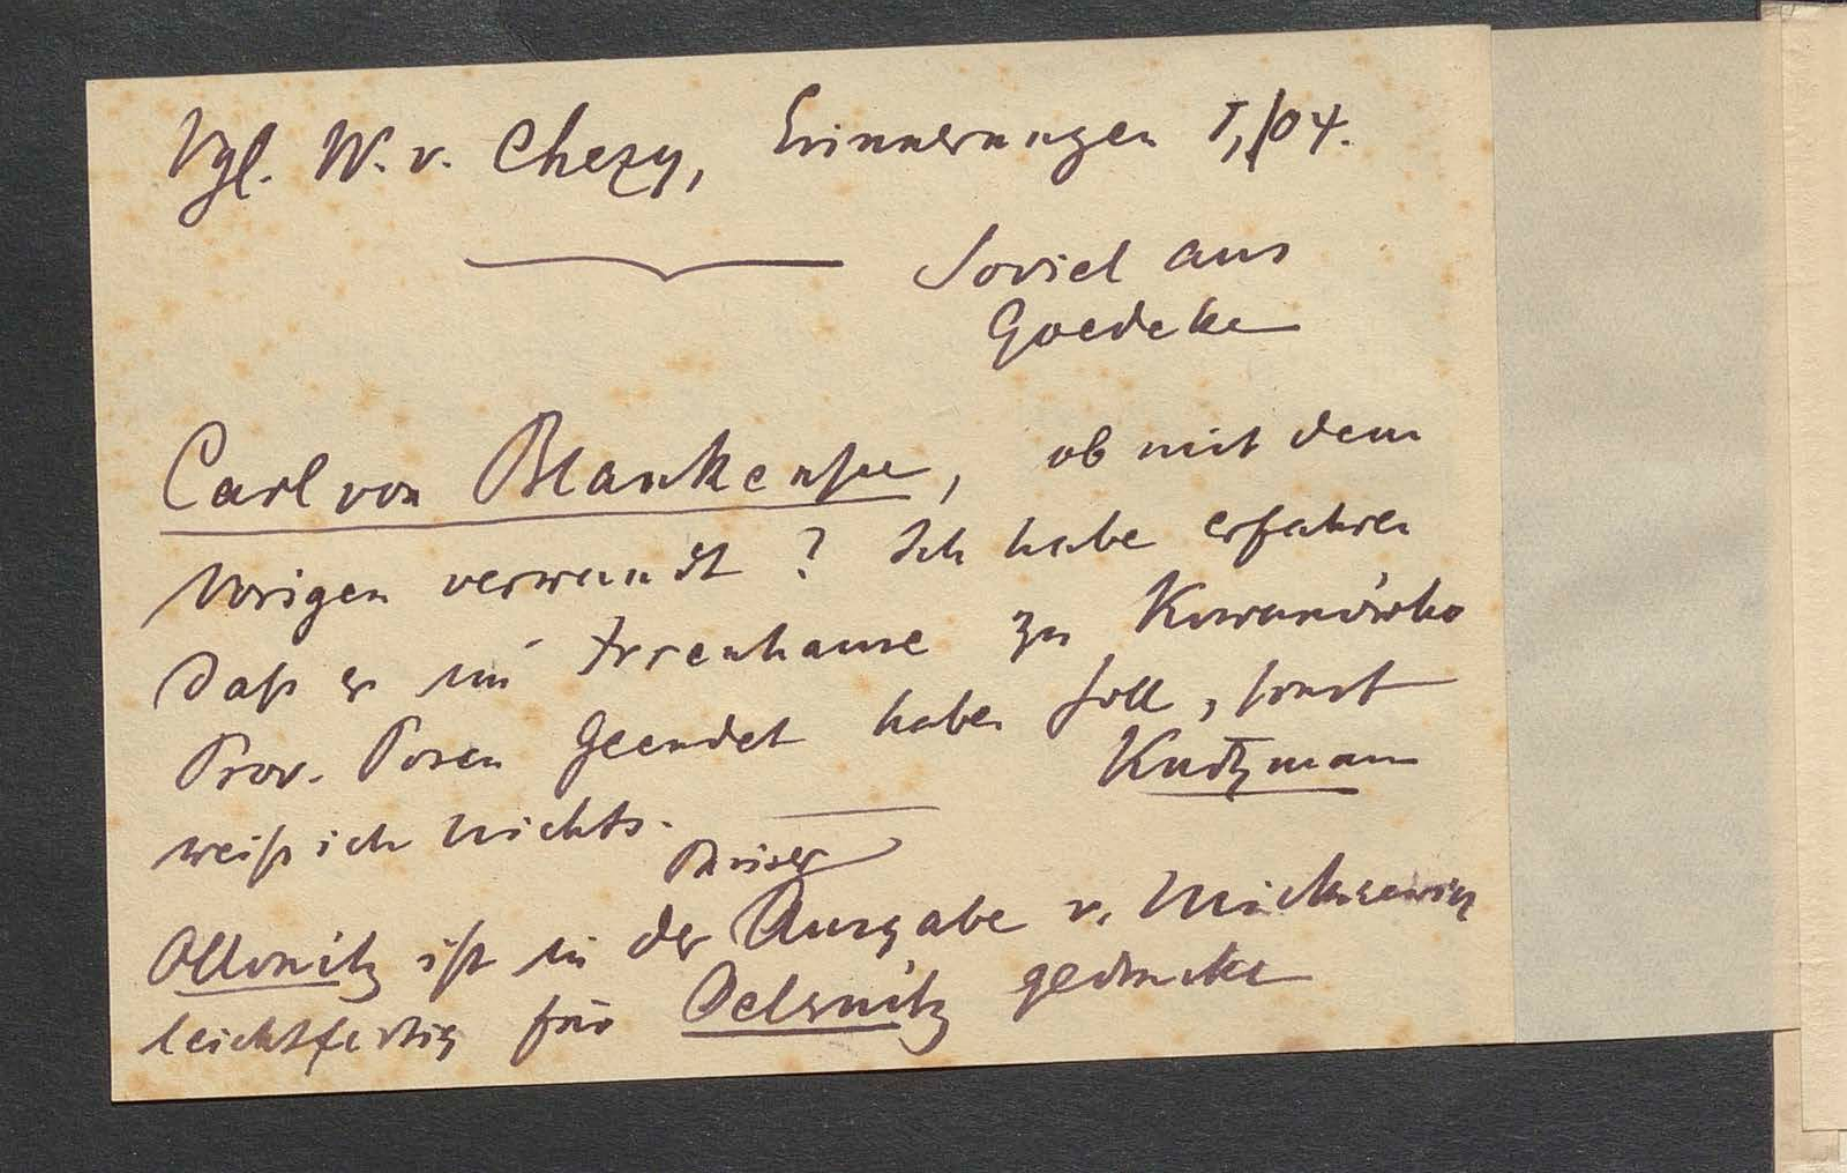 Vgl. W. v. Chezy, Erinnerungen I, 104.
Soviel aus
Goedeke
Carl von Blankensee, ob mit dem
Vorigen verwandt? Ich habe erfahren
daß er im Irrenhause zu Kowanówko
Prov. Posen geendet haben soll, sonst
weiß ich nichts.
Kurtzmann
Pariser
Ollonitz ist in der Ausgabe v. Mickiewicz
leichtfertig für Oelsnitz gedruckt